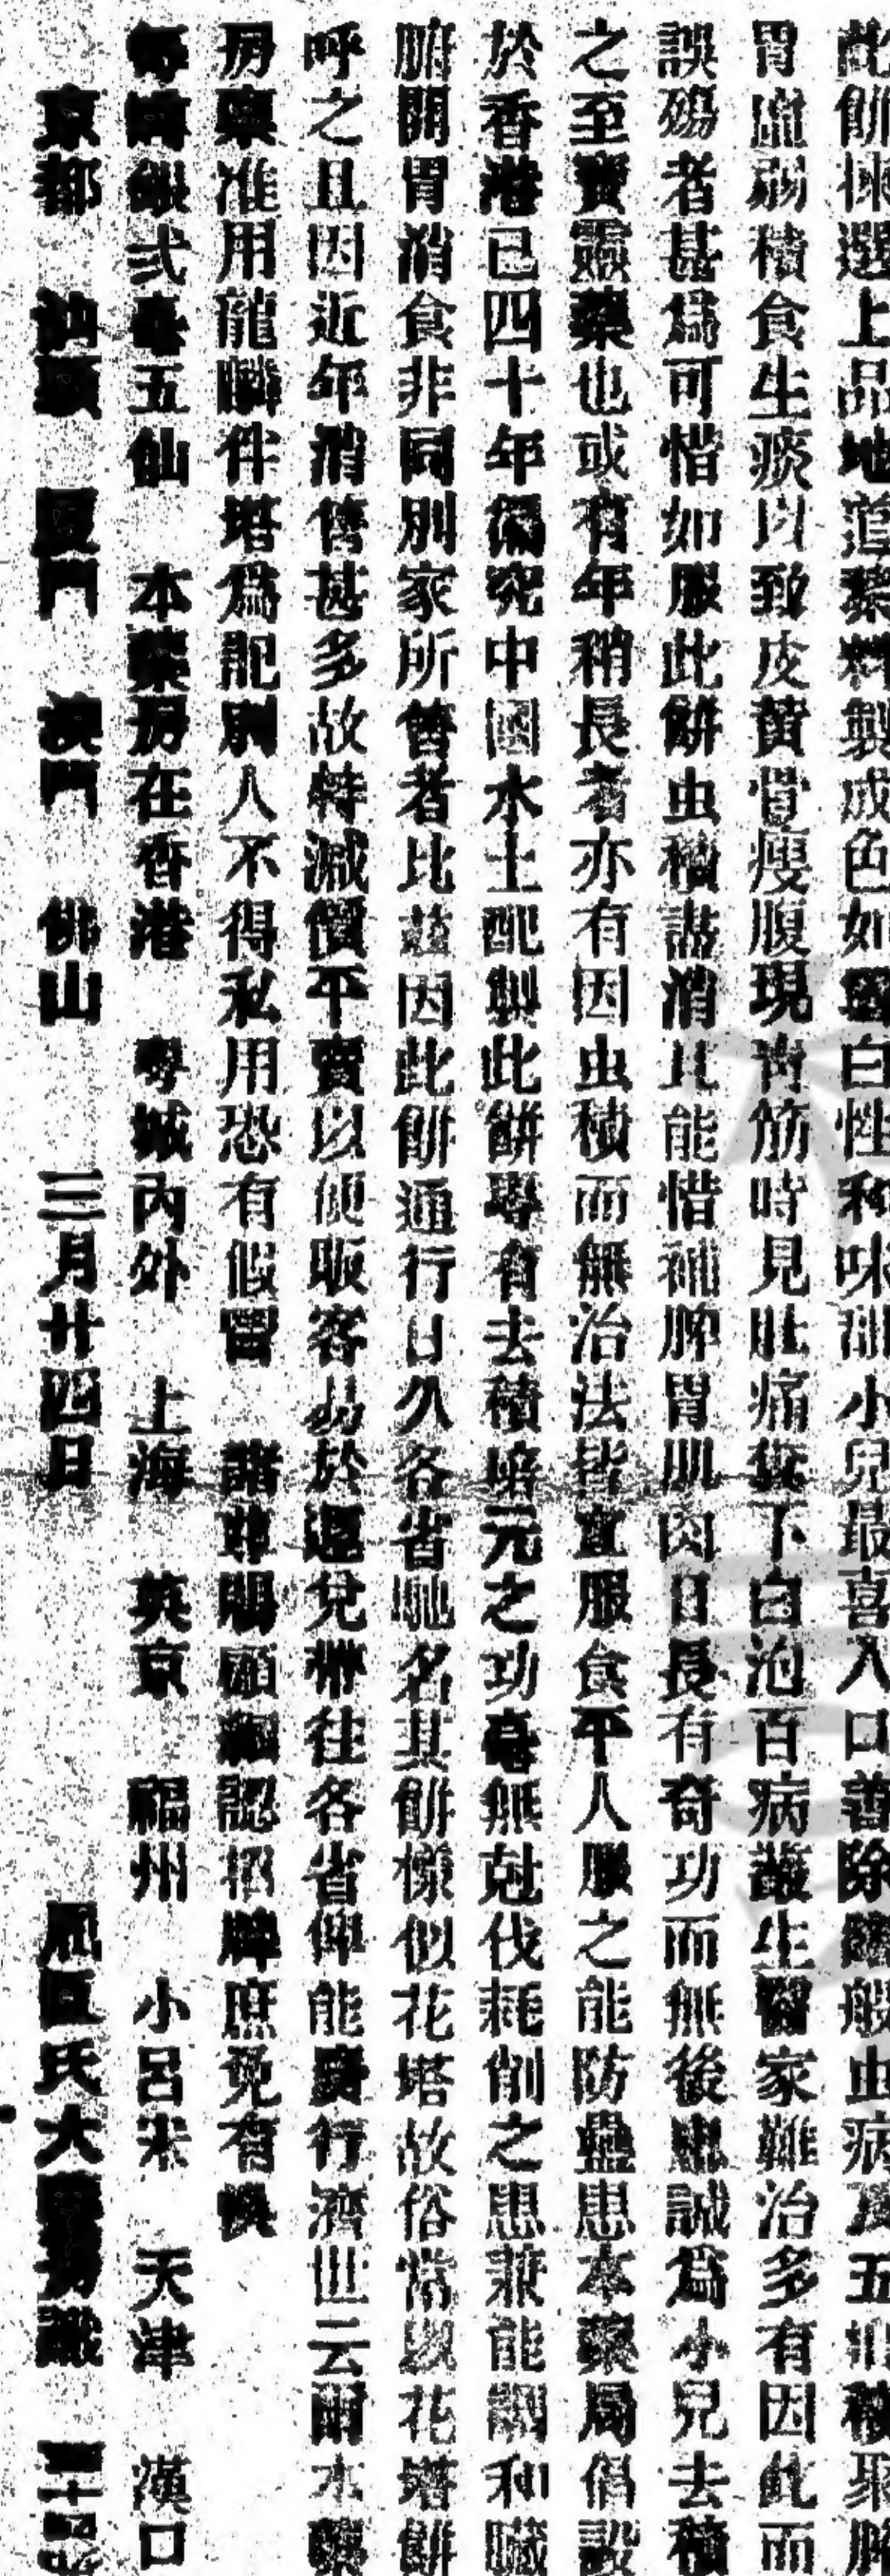 此餅揀選上品地道藥料製成色如雪白性和味甜小兒最喜入口善除諸般虫病及五疳積聚脾
胃虛弱積食生痰以致皮黃骨瘦腹現青筋時見肚痛糞下白泡百病叢生醫家難治多有因此而
誤殤者甚爲可惜如服此餅虫積諸消且能惜補脾胃肌肉日長有奇功而無後患誠爲小兒去積
之至寶靈藥也或有年稍長者亦有因虫積而無治法皆宜服食平人服之能防蠱患本藥局倡設
於香港已四十年攷究中國水土配製此餅專有去積培元之功毫無尅伐耗削之患兼能調和臟
腑開胃消食非同別家所售者比茲因此餅通行日久各省馳名其餅樣似花塔故俗常以花塔餅
呼之且因近年消售甚多故特減價平賣以便販客易於運兌帶往各省俾能廣行濟世云爾本藥
房藥准用龍麟伴塔爲記別人不得私用恐有假冒 諸尊賜顧細認招牌庶免有悞
每樽銀弍毫五仙 本藥房在香港 粵城內外 上海 英京 福州 小呂宋 天津 漢口
京都 汕頭 厦門 澳門 佛山 三月廿四日 屈臣氏大藥房識